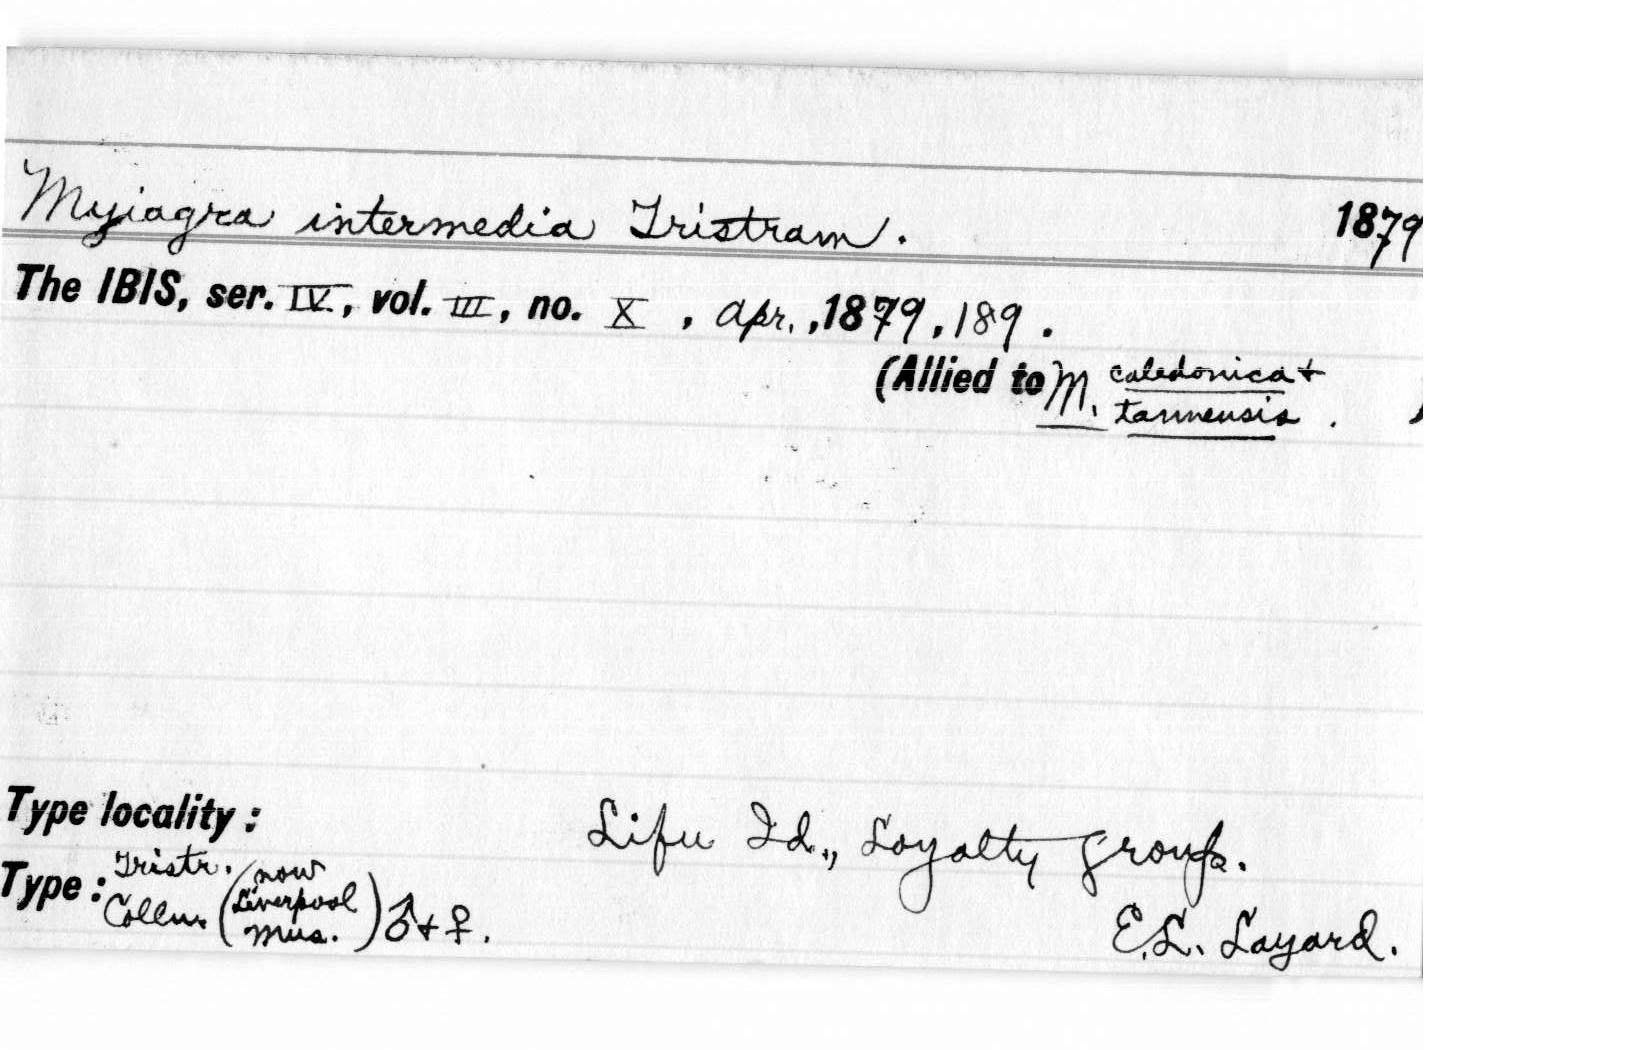 Myiagra intermedia Tristram. 1879
The IBIS, ser. IV, vol. III, no. X , Apr., 1879, 189.
(Allied to M. caledonica +
tannensis . )
Type locality : Lifu Id., Loyalty group.
Type : Tristr. Colln. (now Liverpool Mus.) ♂ + ♀.
E.L. Layard.